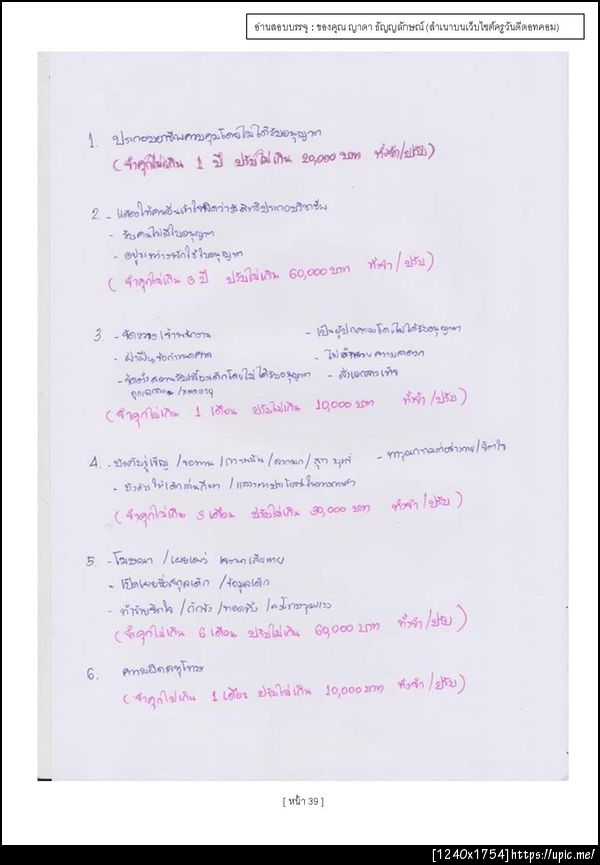 อ่านสอบบรรจุ : ของคุณ ญาดา ธัญญลักษณ์ (สำเนาบนเว็บไซต์ครูวันดีดอทคอม)
1. ประกอบอาชีพควบคุมโดยไม่ได้รับอนุญาต
(จำคุกไม่เกิน 1 ปี ปรับไม่เกิน 20,000 บาท ทั้งจำ/ปรับ)
2. - แสดงให้คนอื่นเข้าใจผิดว่ามีสิทธิประกอบวิชาชีพ
- รับคนไม่มีใบอนุญาต
- อยู่ระหว่างพักใช้ใบอนุญาต
(จำคุกไม่เกิน 3 ปี ปรับไม่เกิน 60,000 บาท ทั้งจำ/ปรับ)
3. - ขัดขวางเจ้าพนักงาน - เป็นผู้ปกครองโดยไม่ได้รับอนุญาต
- ฝ่าฝืนข้อกำหนดศาล - ไม่อำนวยความสะดวก
- จัดตั้งสถานรับเลี้ยงเด็กโดยไม่ได้รับอนุญาต - ส่งเอกสารเท็จ
/หมดอายุ
(จำคุกไม่เกิน 1 เดือน ปรับไม่เกิน 10,000 บาท ทั้งจำ/ปรับ)
4. - บังคับขู่เข็ญ /ขอทาน /การพนัน /ลามก /สุรา บุหรี่ - ทารุณกรรมต่อร่างกาย/จิตใจ
- บังคับให้เด็กเล่นกีฬา /แสวงหาประโยชน์ในทางการค้า
(จำคุกไม่เกิน 3 เดือน ปรับไม่เกิน 30,000 บาท ทั้งจำ/ปรับ)
5. - โฆษณา /เผยแพร่ เจตนาเสียหาย
- เปิดเผยชื่อสกุลเด็ก /ข้อมูลเด็ก
- ทำร้ายจิตใจ /กักขัง /ทอดทิ้ง
(จำคุกไม่เกิน 6 เดือน ปรับไม่เกิน 60,000 บาท ทั้งจำ/ปรับ)
6. ความผิดลหุโทษ
(จำคุกไม่เกิน 1 เดือน ปรับไม่เกิน 10,000 บาท ทั้งจำ/ปรับ)
[ หน้า 39 ]
[1240x1754]https://upic.me/